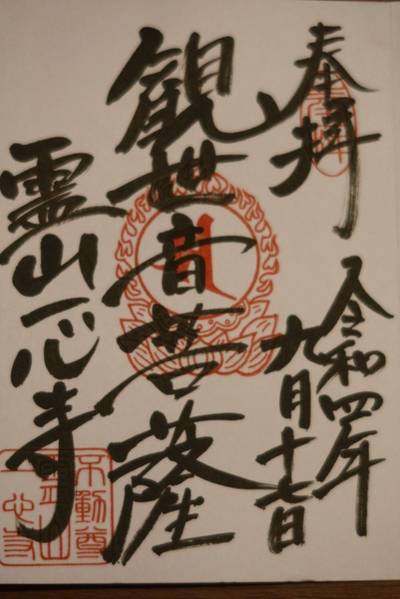 奉拝
令和四年
九月十七日
観世音菩薩
霊山一心寺
不動尊
霊山
一心寺